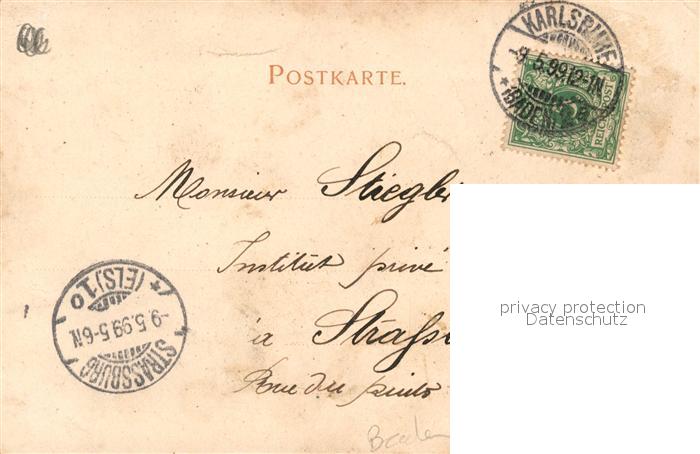 KARLSRUHE
-9.5.99.12-1N.
* (BADEN)
REICHSPOST
POSTKARTE.
Monsieur Stiegl
Institut privé
à Strass
Rue du puits
STRASSBURG
-9.5.99.5-6N
* (ELS) 1 o
privacy protection
Datenschutz
Baden